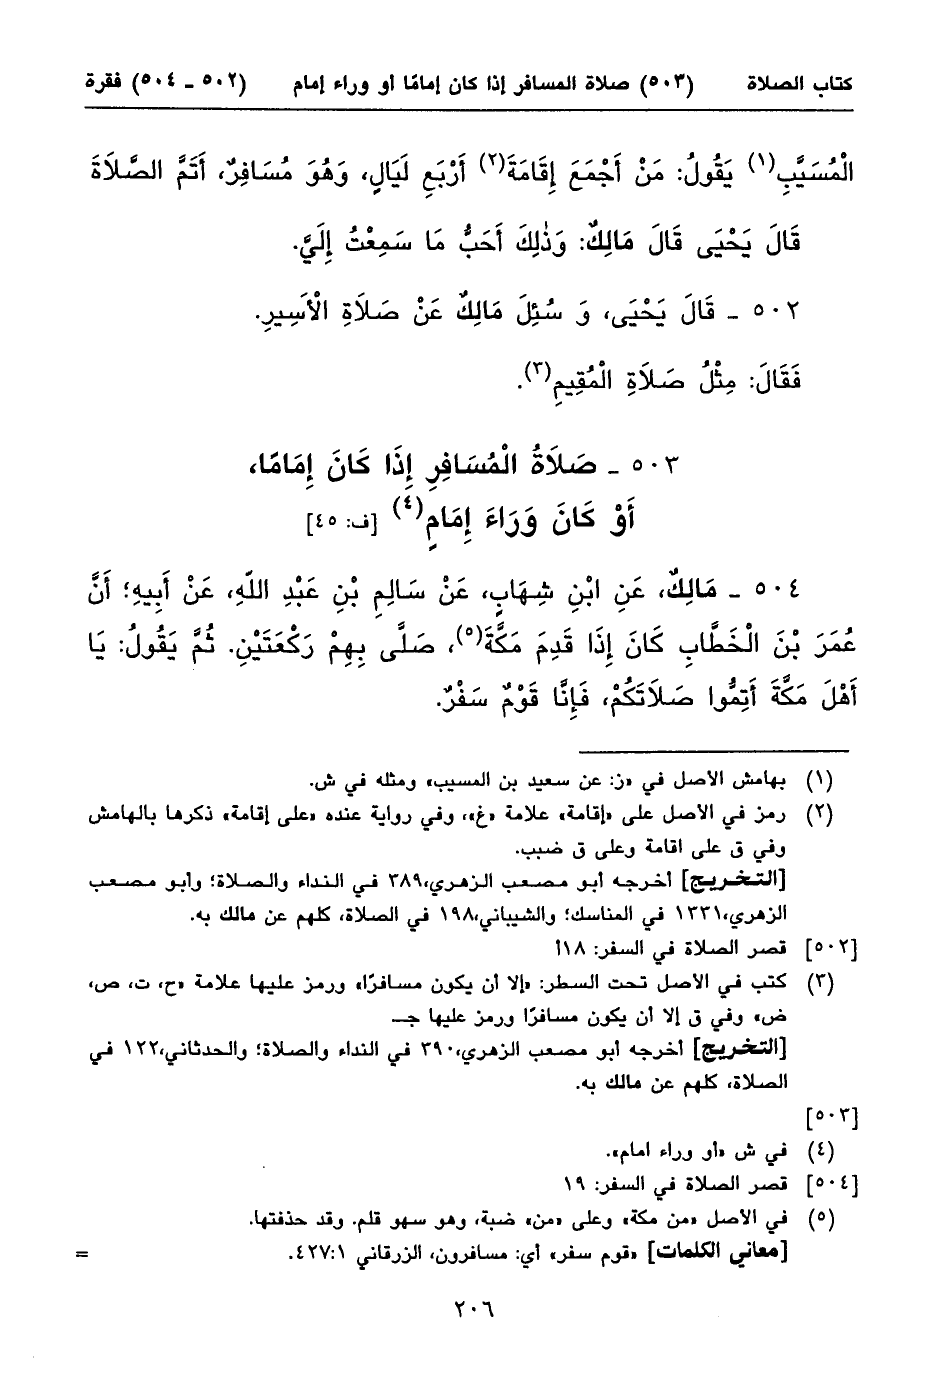 كتاب الصلاة (٥٠٣) صلاة المسافر إذا كان إمامًا أو وراء إمام (٥٠٢ ـ ٥٠٤) فقرة
الْمُسَيَّبِ(١) يَقُولُ: مَنْ أَجْمَعَ إِقَامَةَ(٢) أَرْبَعِ لَيَالٍ، وَهُوَ مُسَافِرٌ، أَتَمَّ الصَّلَاةَ
قَالَ يَحْيَى قَالَ مَالِكٌ: وَذٰلِكَ أَحَبُّ مَا سَمِعْتُ إِلَيَّ.
٥٠٢ ـ قَالَ يَحْيَى، وَ سُئِلَ مَالِكٌ عَنْ صَلَاةِ الْأَسِيرِ.
فَقَالَ: مِثْلُ صَلَاةِ الْمُقِيمِ(٣).
٥٠٣ ـ صَلَاةُ الْمُسَافِرِ إِذَا كَانَ إِمَامًا،
أَوْ كَانَ وَرَاءَ إِمَامٍ(٤) [ف: ٤٥]
٥٠٤ ـ مَالِكٌ، عَنِ ابْنِ شِهَابٍ، عَنْ سَالِمِ بْنِ عَبْدِ اللّهِ، عَنْ أَبِيهِ؛ أَنَّ
عُمَرَ بْنَ الْخَطَّابِ كَانَ إِذَا قَدِمَ مَكَّةَ(٥)، صَلَّى بِهِمْ رَكْعَتَيْنِ. ثُمَّ يَقُولُ: يَا
أَهْلَ مَكَّةَ أَتِمُّوا صَلَاتَكُمْ، فَإِنَّا قَوْمٌ سَفْرٌ.
(١) بهامش الأصل في «ز: عن سعيد بن المسيب» ومثله في ش.
(٢) رمز في الأصل على «إقامة» علامة «غ»، وفي رواية عنده «على إقامة» ذكرها بالهامش
وفي ق على اقامة وعلى ق ضبب.
[التخريج] أخرجه أبو مصعب الزهري، ٣٨٩ في النداء والصلاة؛ وأبو مصعب
الزهري، ١٣٣١ في المناسك؛ والشيباني، ١٩٨ في الصلاة، كلهم عن مالك به.
[٥٠٢] قصر الصلاة في السفر: ١٨أ
(٣) كتب في الأصل تحت السطر: «إلا أن يكون مسافرًا» ورمز عليها علامة «ح، ت، ص،
ض» وفي ق إلا أن يكون مسافرًا ورمز عليها جـ
[التخريج] أخرجه أبو مصعب الزهري، ٣٩٠ في النداء والصلاة؛ والحدثاني، ١٢٢ في
الصلاة، كلهم عن مالك به.
[٥٠٣]
(٤) في ش «أو وراء امام».
[٥٠٤] قصر الصلاة في السفر: ١٩
(٥) في الأصل «من مكة» وعلى «من» ضبة، وهو سهو قلم. وقد حذفتها.
[معاني الكلمات] «قوم سفر» أي: مسافرون، الزرقاني ٤٢٧:١. =
٢٠٦